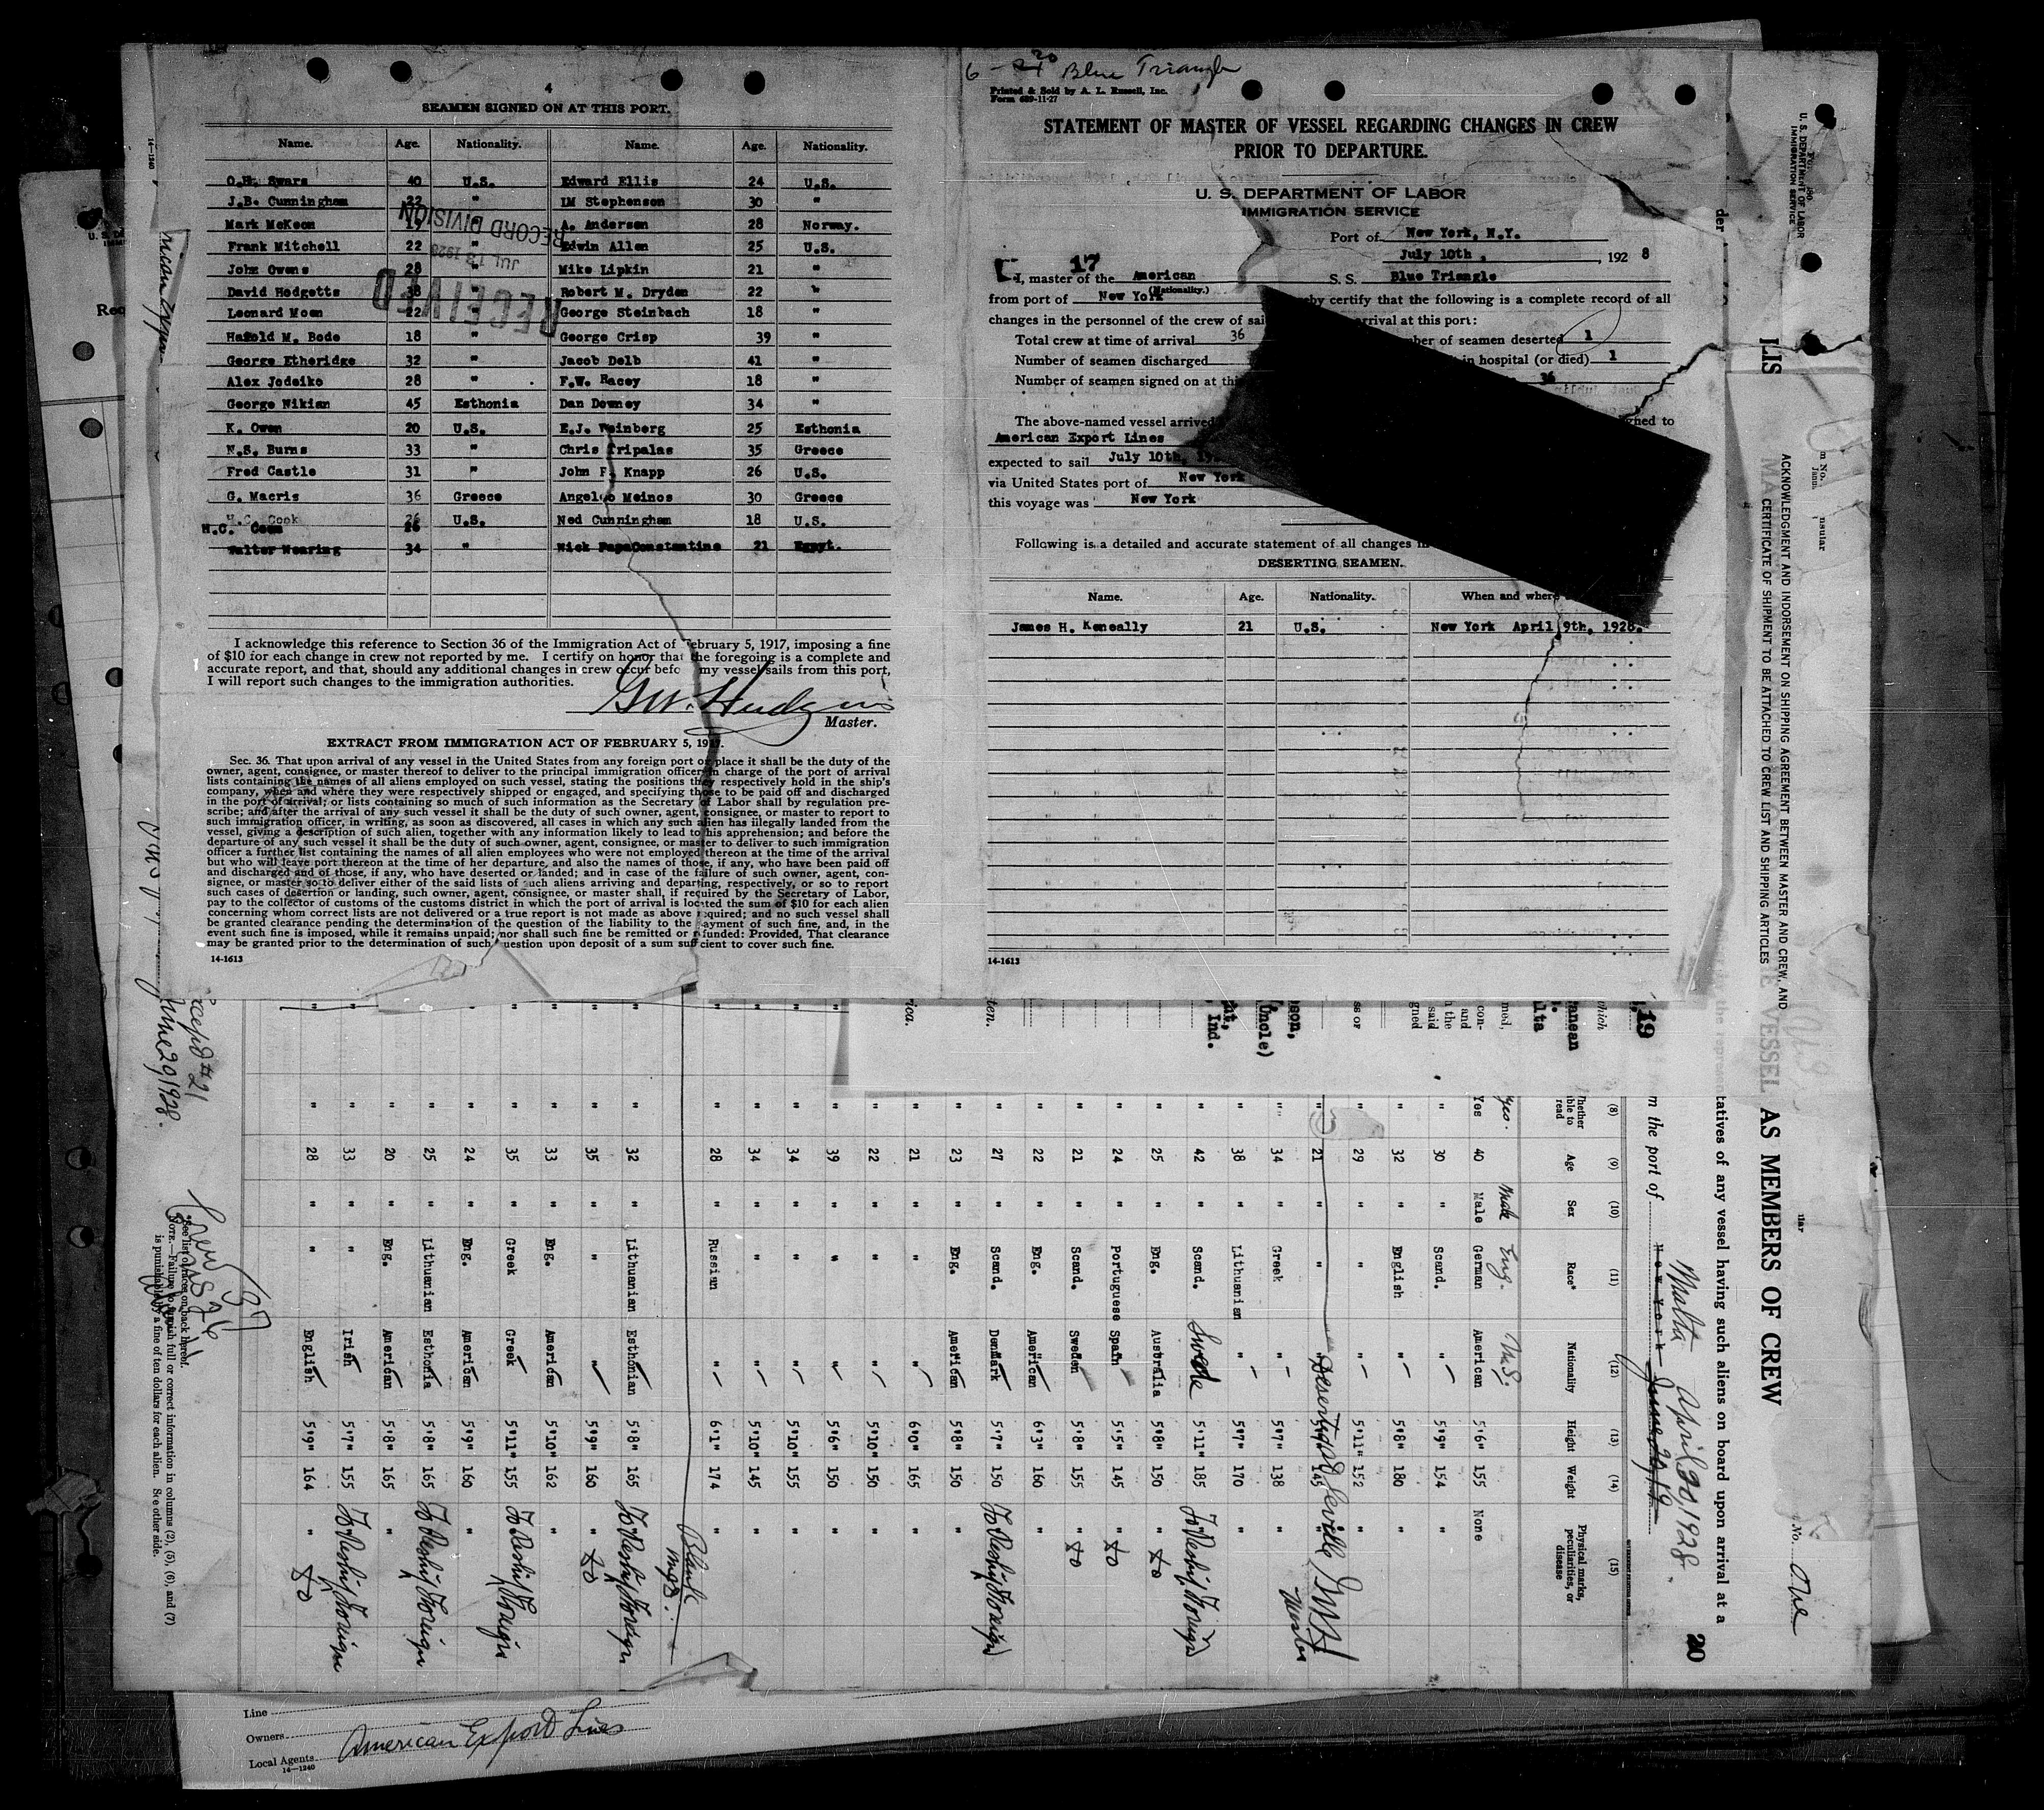 4
SEAMEN SIGNED ON AT THIS PORT.
Name. Age. Nationality. Name. Age. Nationality.
O.H. Swars 40 U.S. Edward Ellis 24 U.S.
J.B. Cunningham 22 " IM Stephenson 30 "
Mark McKeon 19 " A. Andersen 28 Norway.
Frank Mitchell 22 " Edwin Allen 25 U.S.
John Owens 28 " Mike Lipkin 21 "
David Hodgetts 38 " Robert M. Dryden 22 "
Leonard Moen 22 " George Steinbach 18 "
Harold M. Bode 18 " George Crisp 39 "
George Etheridge 32 " Jacob Delb 41 "
Alex Jodeiko 28 " F.W. Racey 18 "
George Nikian 45 Esthonia Dan Downey 34 "
K. Owen 20 U.S. E.J. Weinberg 25 Esthonia
N.S. Burns 33 " Chris Tripalas 35 Greece
Fred Castle 31 " John F. Knapp 26 U.S.
G. Macris 36 Greece Angelo Meinos 30 Greece
H.C. Cook 26 U.S. Ned Cunningham 18 U.S.
H.C. 26
Walter Nearing 34 " Nick PapaConstantine 21 Egypt.
RECORD DIVISION
JUL 13 1928
RECEIVED
I acknowledge this reference to Section 36 of the Immigration Act of February 5, 1917, imposing a fine
of $10 for each change in crew not reported by me. I certify on honor that the foregoing is a complete and
accurate report, and that, should any additional changes in crew occur befo my vessel sails from this port,
I will report such changes to the immigration authorities.
G.W. Hudgins
Master.
EXTRACT FROM IMMIGRATION ACT OF FEBRUARY 5, 1917.
Sec. 36. That upon arrival of any vessel in the United States from any foreign port or place it shall be the duty of the
owner, agent, consignee, or master thereof to deliver to the principal immigration officer in charge of the port of arrival
lists containing the names of all aliens employed on such vessel, stating the positions they respectively hold in the ship's
company, when and where they were respectively shipped or engaged, and specifying those to be paid off and discharged
in the port of arrival; or lists containing so much of such information as the Secretary of Labor shall by regulation pre-
scribe; and after the arrival of any such vessel it shall be the duty of such owner, agent, consignee, or master to report to
such immigration officer, in writing, as soon as discovered, all cases in which any such alien has illegally landed from the
vessel, giving a description of such alien, together with any information likely to lead to his apprehension; and before the
departure of any such vessel it shall be the duty of such owner, agent, consignee, or master to deliver to such immigration
officer a further list containing the names of all alien employees who were not employed thereon at the time of the arrival
but who will leave port thereon at the time of her departure, and also the names of those, if any, who have been paid off
and discharged and of those, if any, who have deserted or landed; and in case of the failure of such owner, agent, con-
signee, or master so to deliver either of the said lists of such aliens arriving and departing, respectively, or so to report
such cases of desertion or landing, such owner, agent, consignee, or master shall, if required by the Secretary of Labor,
pay to the collector of customs of the customs district in which the port of arrival is located the sum of $10 for each alien
concerning whom correct lists are not delivered or a true report is not made as above required; and no such vessel shall
be granted clearance pending the determination of the question of the liability to the payment of such fine, and, in the
event such fine is imposed, while it remains unpaid; nor shall such fine be remitted or refunded: Provided, That clearance
may be granted prior to the determination of such question upon deposit of a sum sufficient to cover such fine.
14-1613
6 - 20 Blue Triangle
Printed & Sold by A. L. Russell, Inc.
Form 689-11-27
STATEMENT OF MASTER OF VESSEL REGARDING CHANGES IN CREW
PRIOR TO DEPARTURE.
U. S. DEPARTMENT OF LABOR
IMMIGRATION SERVICE
Port of New York, N.Y.
July 10th, , 1928
17
I, master of the American S. S. Blue Triangle
(Nationality.)
from port of New York eby certify that the following is a complete record of all
changes in the personnel of the crew of sai arrival at this port:
Total crew at time of arrival 36 ber of seamen deserted 1
Number of seamen discharged in hospital (or died) 1
Number of seamen signed on at thi 36
The above-named vessel arrived gned to
American Export Lines
expected to sail July 10th, 19
via United States port of New York
this voyage was New York
Following is a detailed and accurate statement of all changes in
DESERTING SEAMEN.
Name. Age. Nationality. When and where
James H. Keneally 21 U.S. New York April 9th, 1928.
14-1613
U. S. DEPARTMENT OF LABOR
IMMIGRATION SERVICE
LIS AS MEMBERS OF CREW
ACKNOWLEDGMENT AND INDORSEMENT ON SHIPPING AGREEMENT BETWEEN MASTER AND CREW, AND
CERTIFICATE OF SHIPMENT TO BE ATTACHED TO CREW LIST AND SHIPPING ARTICLES
No. One
20
tatives of any vessel having such aliens on board upon arrival at a
m the port of New York Malta April 20, 1928.
, 19
(8) (9) (10) (11) (12) (13) (14) (15)
Whether able to read Age Sex Race* Nationality Height Weight Physical marks, peculiarities, or disease
yes. Male Eng. U.S.
Yes 40 Male German American 5'6" 155 None
" 30 " Scand. " 5'9" 154 "
" 32 " English " 5'8" 180 "
" 29 " " " 5'11" 152 "
" 21 " " " 145 Deserted Seville
" 34 " Greek " 5'7" 138 "
" 38 " Lithuanian " 5'7" 170 "
" 42 " Scand. Swede 5'11" 185 " To Reship Foreign
" 25 " Eng. Australia 5'8" 150 "
" 24 " Portuguese Spain 5'5" 145 "
" 21 " Scand. Sweden 5'8" 155 "
" 22 " Eng. American 6'3" 160 "
" 27 " Scand. Denmark 5'7" 150 " To Reship Foreign
" 23 " Eng. American 5'8" 150 "
" 21 " " " 6'0" 165 "
" 22 " " " 5'10" 150 "
" 39 " " " 5'6" 150 "
" 34 " " " 5'10" 155 "
" 34 " " " 5'10" 145 "
" 28 " Russian " 6'1" 174 "
" 32 " Lithuanian Esthonian 5'8" 165 " To Reship Foreign
" 35 " " " 5'9" 160 "
" 33 " Eng. American 5'10" 162 "
" 35 " Greek Greek 5'11" 155 " To Reship Foreign
" 24 " Eng. American 5'9" 160 "
" 25 " Lithuanian Esthonia 5'8" 165 " To Reship Foreign
" 20 " Eng. American 5'8" 165 "
" 33 " " Irish 5'7" 155 " To Reship Foreign
" 28 " " English 5'9" 164 "
*See list of races on back hereof.
NOTE.—Failure to furnish full or correct information in columns (2), (5), (6), and (7)
is punishable by a fine of ten dollars for each alien. See other side.
June 29 1928.
Line
Owners
Local Agents American Export Lines
14—1240